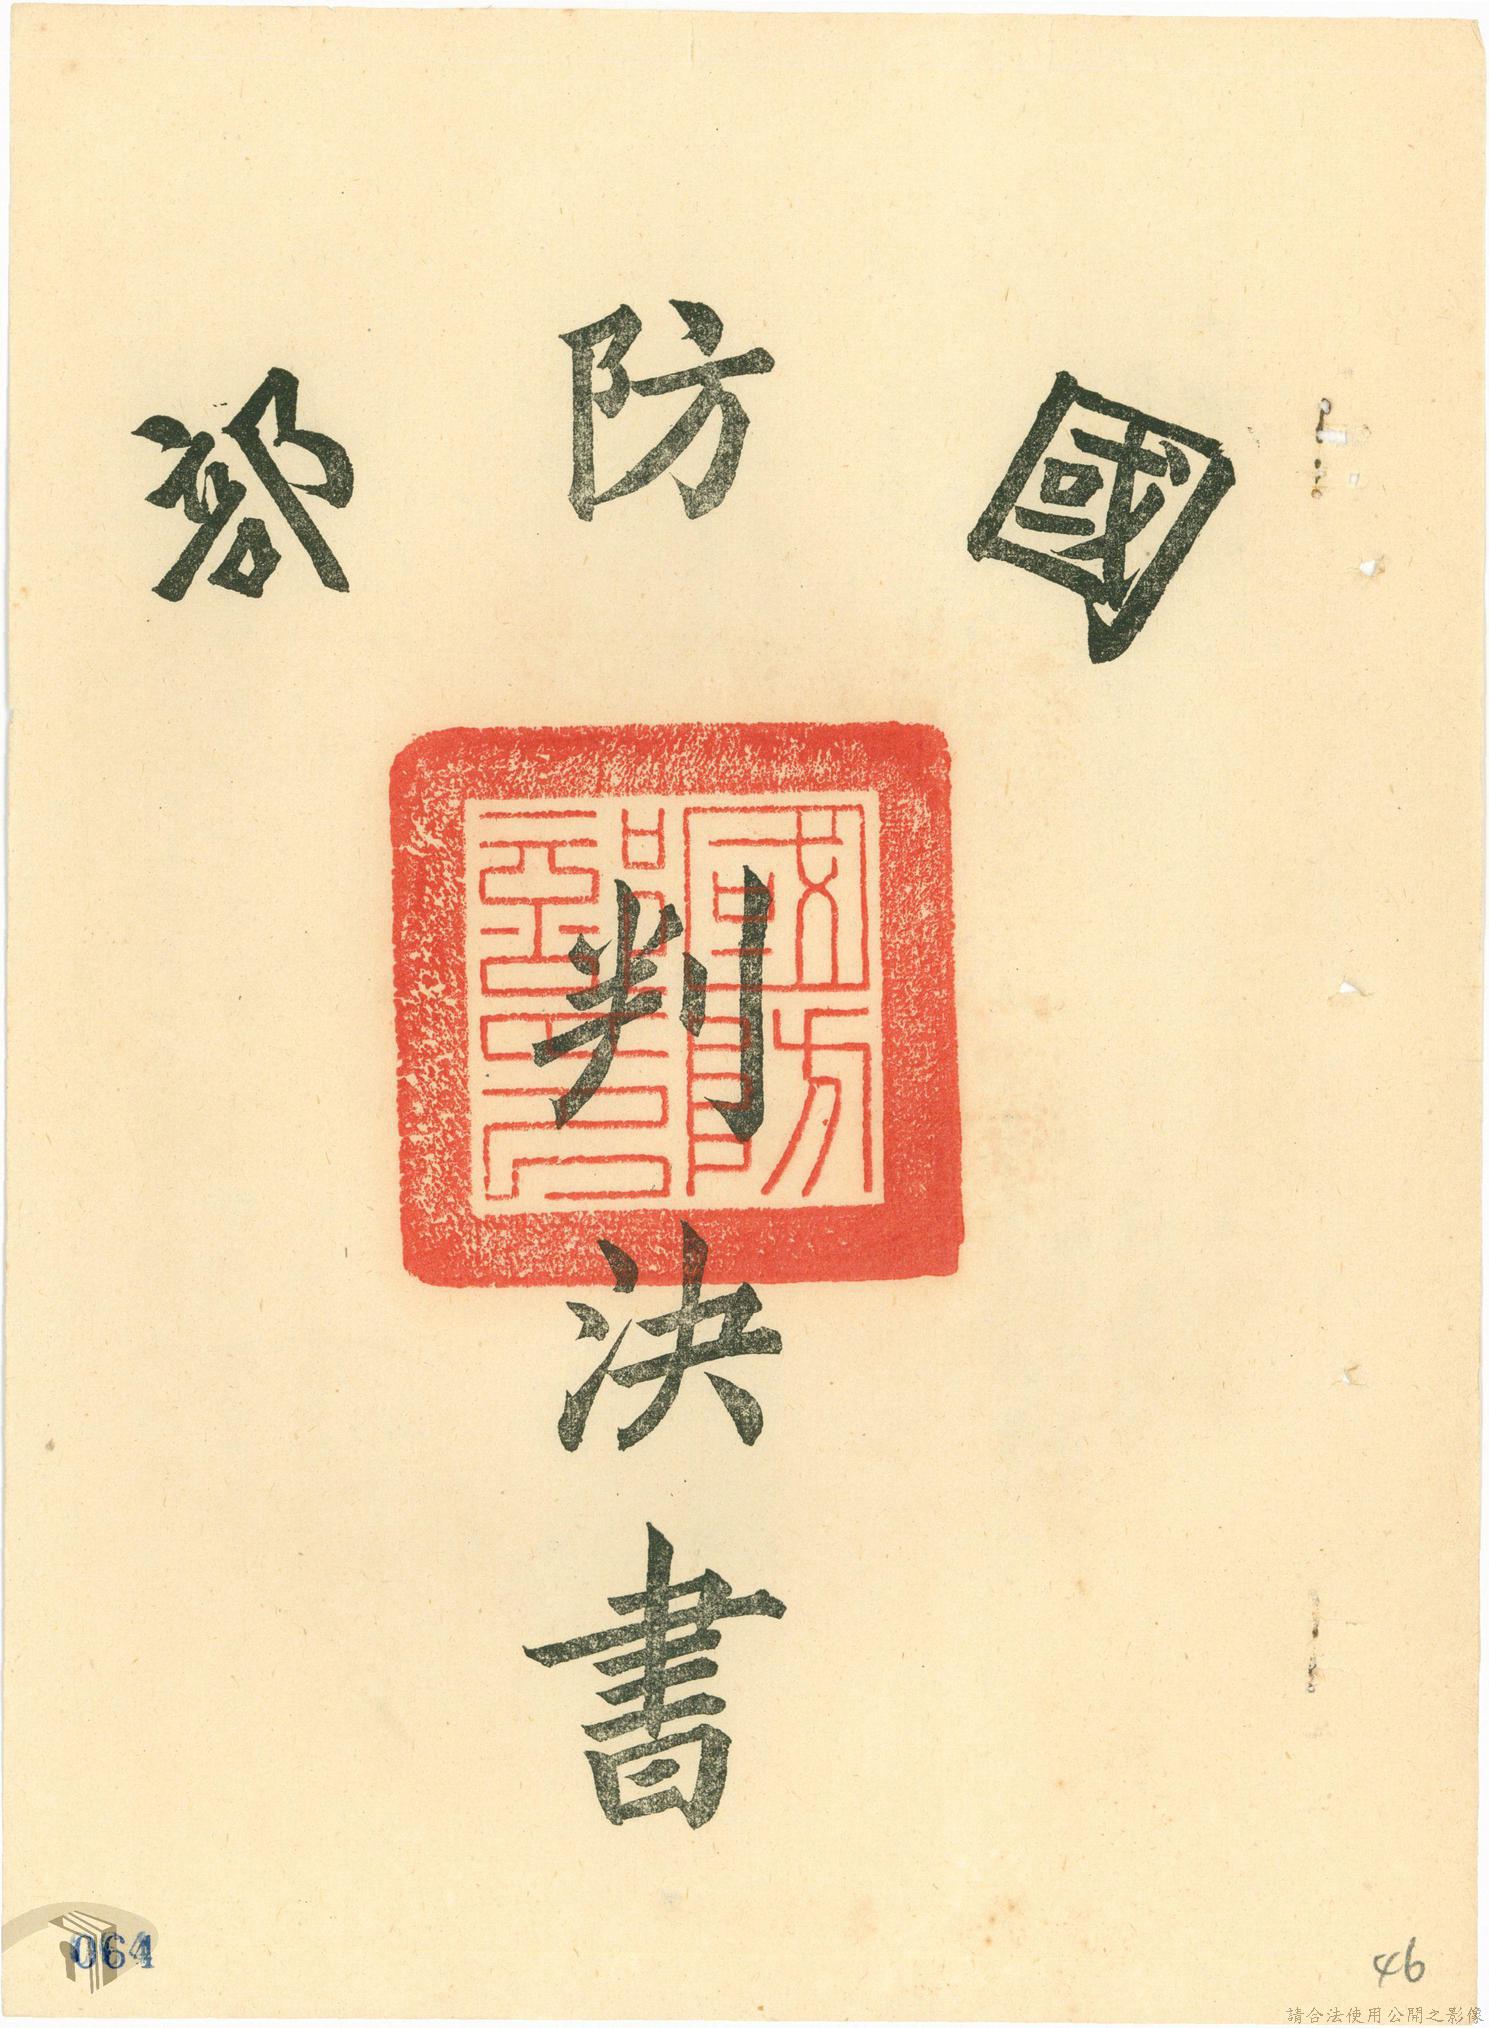 國防部
國防部印
判決書
064
46
請合法使用公開之影像